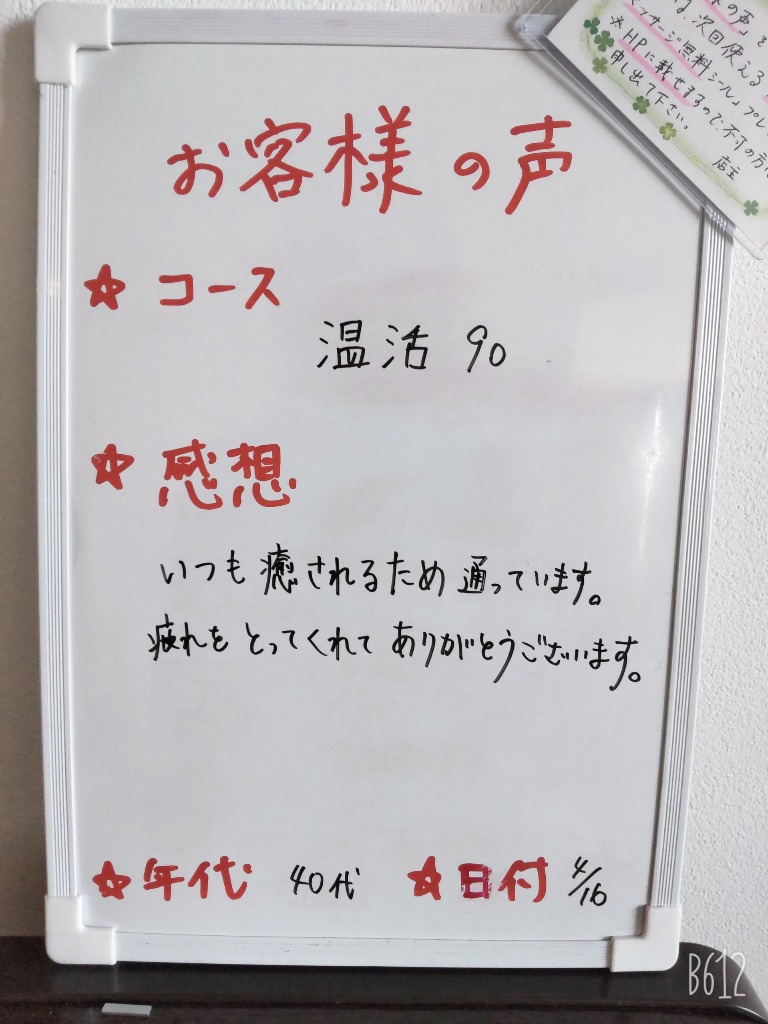 の声」を
次回使える
マッサージ無料シール」プレ
※HPに載せますので不可の方は
申し出て下さい。
店主
お客様の声
☆ コース
温活 90
☆ 感想
いつも癒されるため通っています。
疲れをとってくれてありがとうございます。
☆ 年代 40代 ☆ 日付 4/16
B612